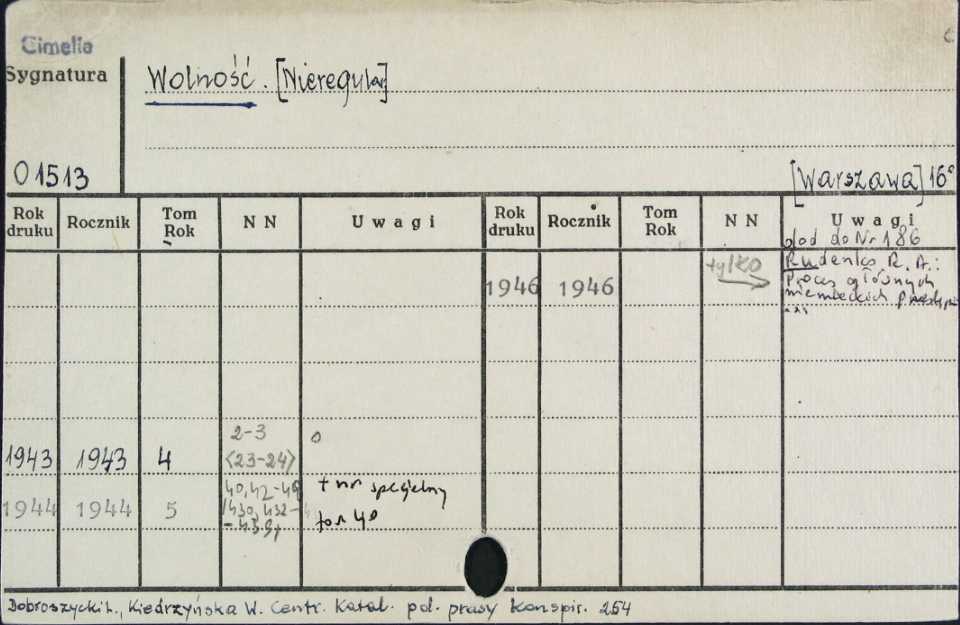 Cimelia
Sygnatura
Wolność. [Nieregular]
O 1513
[Warszawa] 16°
Rok druku Rocznik Tom Rok N N Uwagi Rok druku Rocznik Tom Rok N N Uwagi
dod do Nr 186
1946 1946 tylko Rudenko R. A.:
Proces głównych
niemieckich
1943 1943 4 2-3
<23-24>
1944 1944 5 40, 42-49 + nr specjalny
/430, 432-
-439/ 40
Dobroszycki L., Kiedrzyńska W. Centr. Katal. pol. prasy konspir. 254